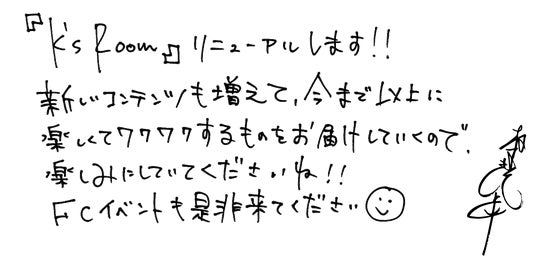 『K's Room』リニューアルします!!
新しいコンテンツも増えて、今まで以上に
楽しくてワクワクするものをお届けしていくので、
楽しみにしていてくださいね!!
FCイベントも是非来てください